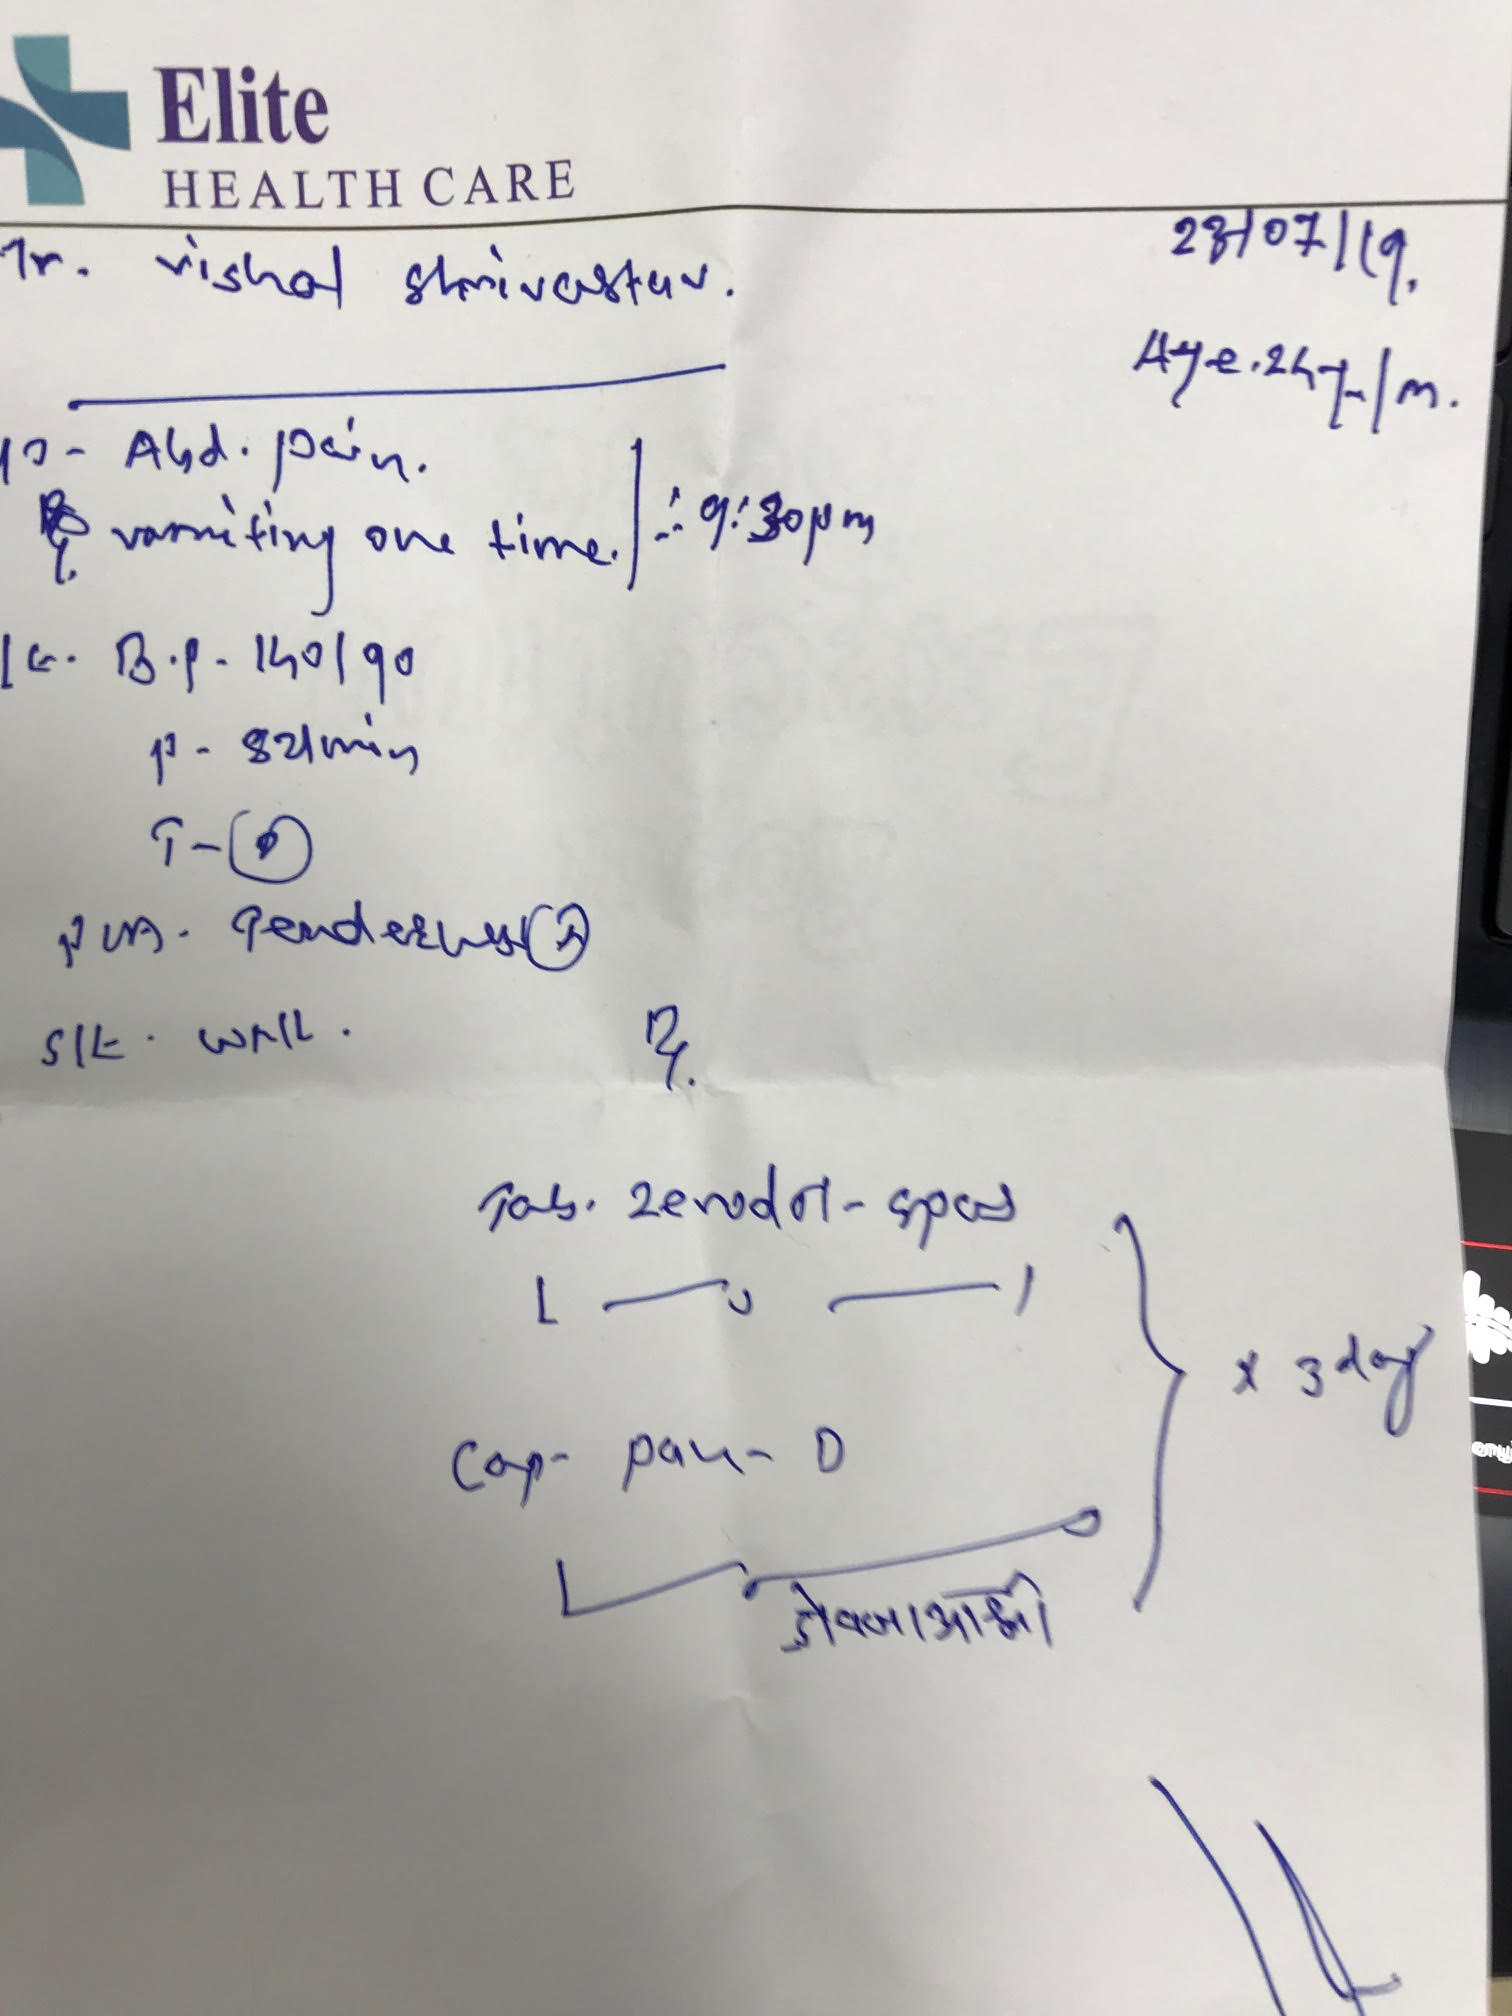 Elite
HEALTH CARE
Mr. Vishal Shrivastav.
28/07/19.
Age. 24y/m.
- Abd. pain.
vomiting one time. ∴ 9:30pm
B.P - 140/90
P - 82/min
T - 
P/A. Tenderness (+)
S/E. WNL.
Rx.
Tab. Zerodol-spas
1 — 0 — 1
x 3 day
Cap- pan- D
1 — 0 — 0